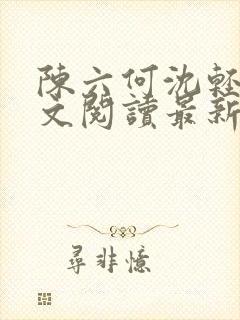 陳六何沈輕
文閱讀最新
尋非憶